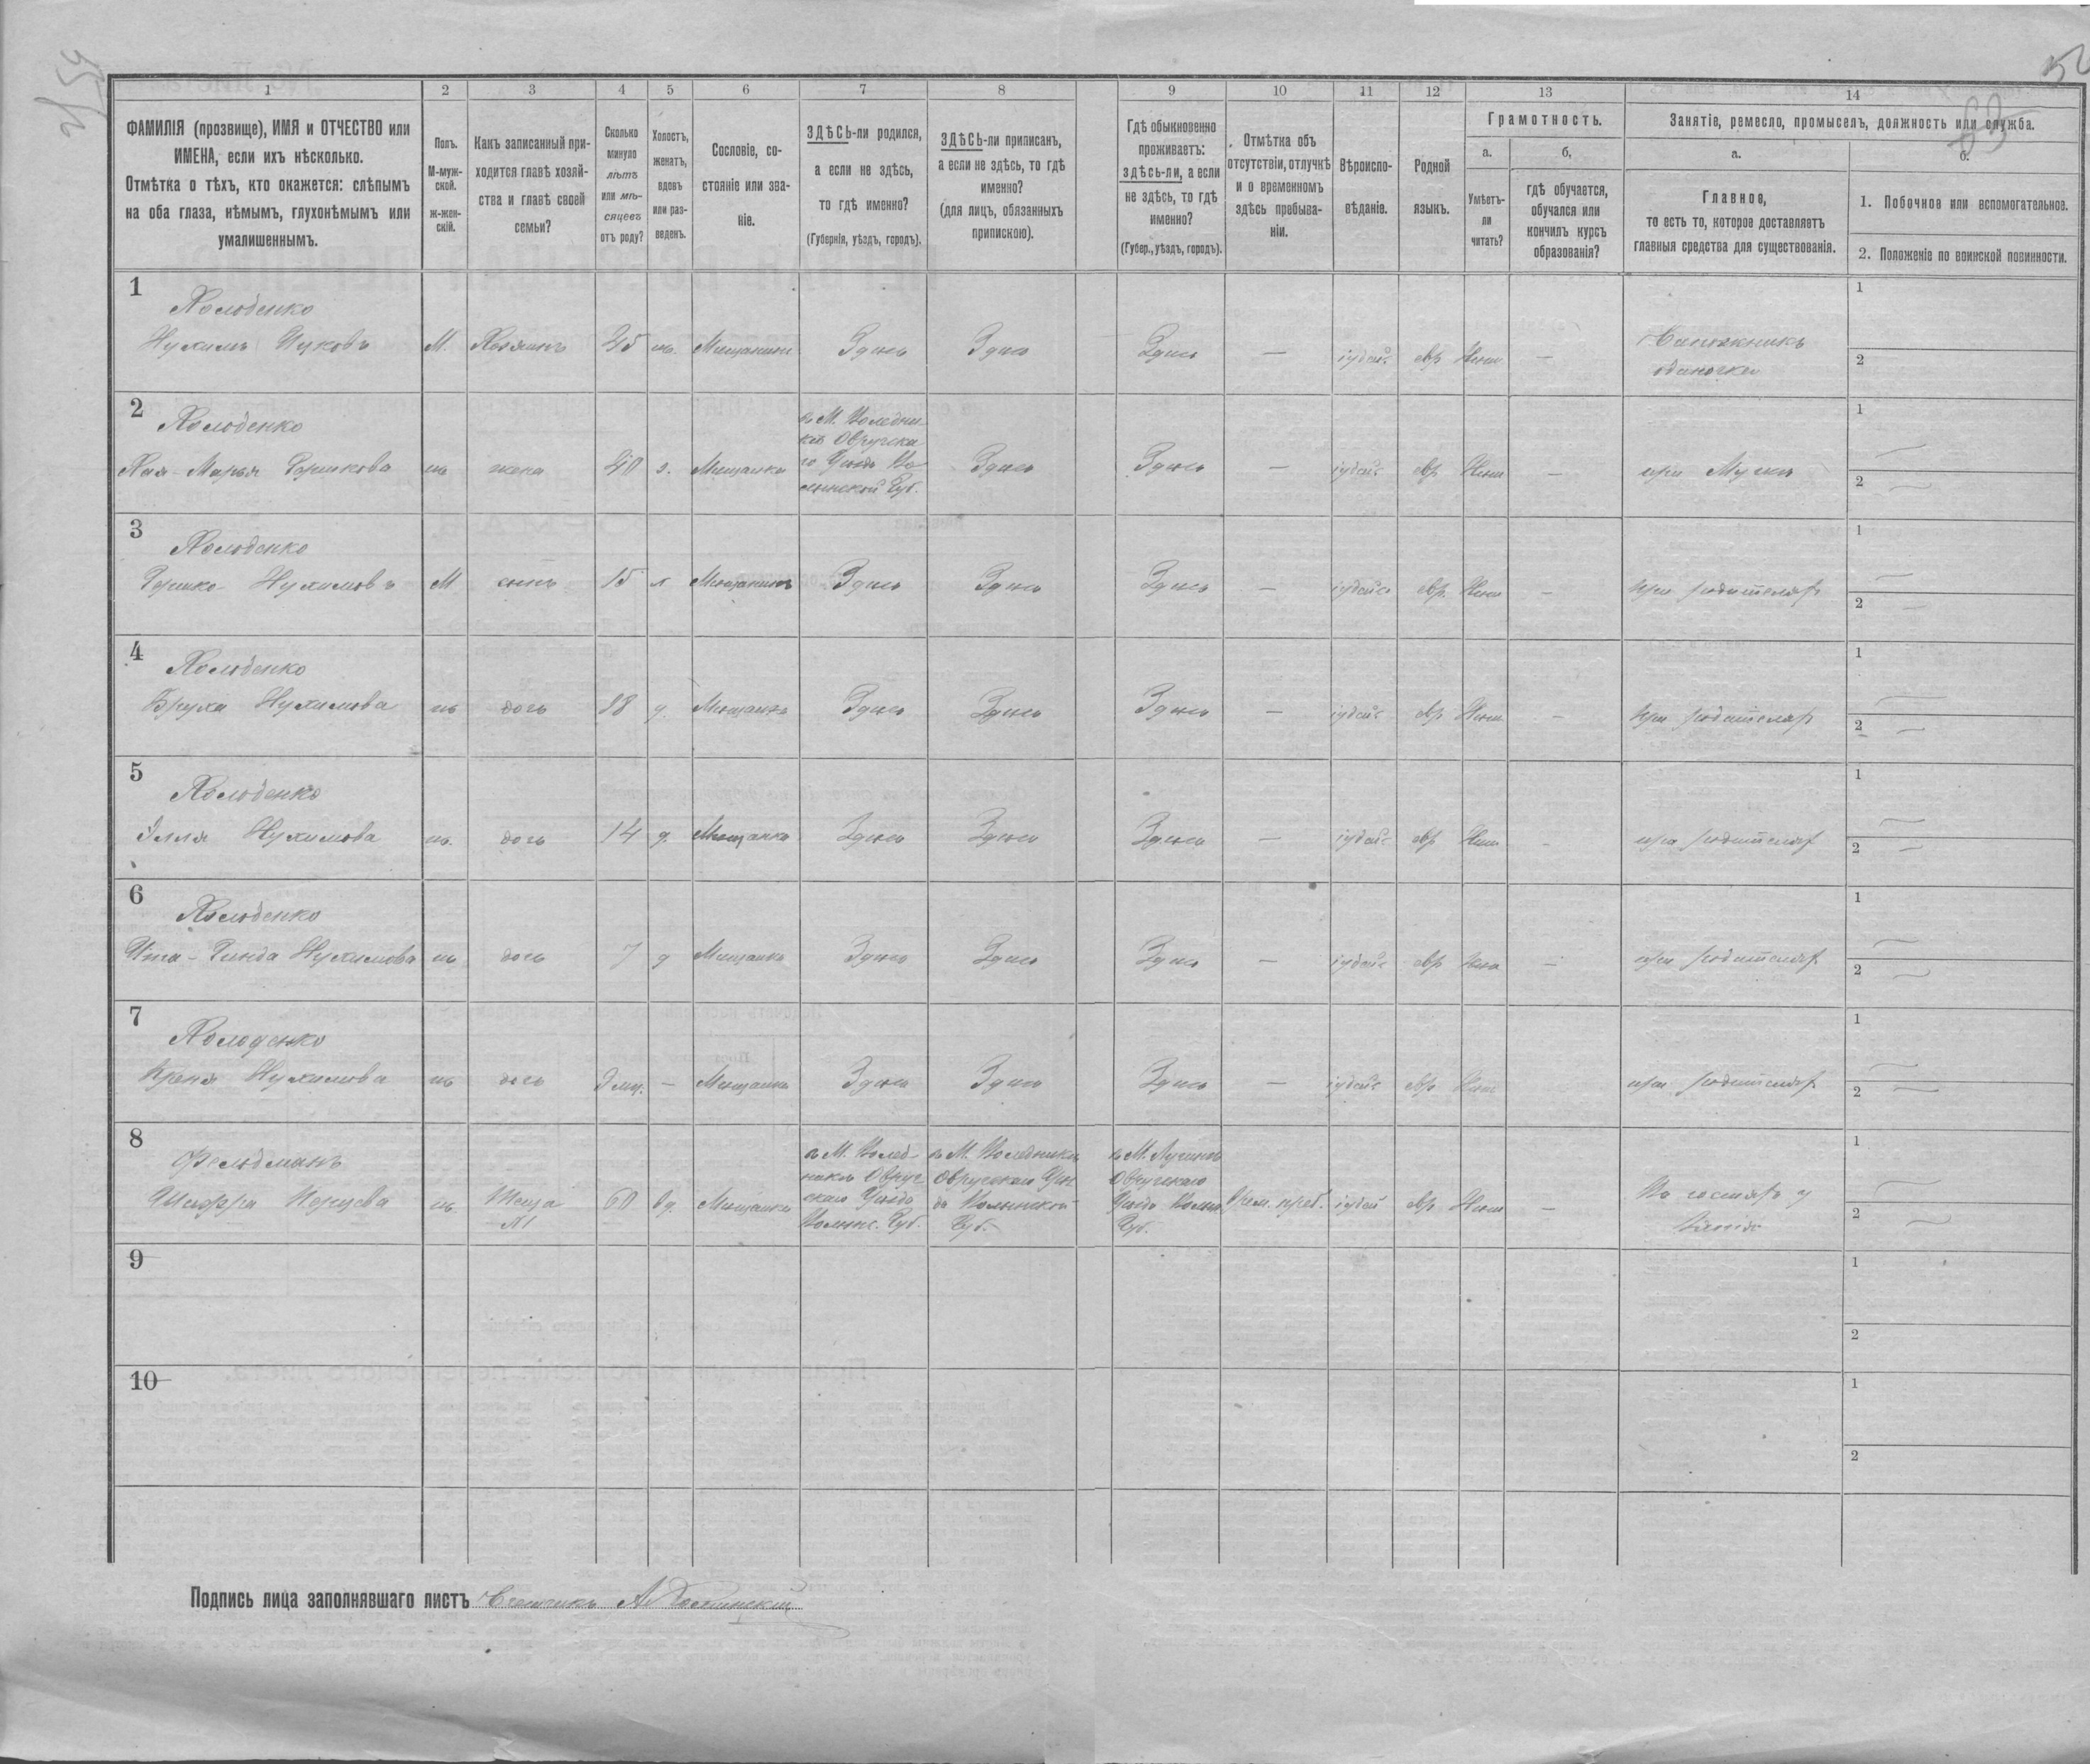 1 2 3 4 5 6 7 8 9 10 11 12 13 14
ФАМИЛІЯ (прозвище), ИМЯ и ОТЧЕСТВО или
ИМЕНА, если ихъ нѣсколько.
Отмѣтка о тѣхъ, кто окажется: слѣпымъ
на оба глаза, нѣмымъ, глухонѣмымъ или
умалишеннымъ.
Полъ.
М-муж-
ской.
ж-жен-
скій.
Какъ записанный при-
ходится главѣ хозяй-
ства и главѣ своей
семьи?
Сколько
минуло
лѣтъ
или мѣ-
сяцевъ
отъ роду?
Холостъ,
женатъ,
вдовъ
или раз-
веденъ.
Сословіе, со-
стояніе или зва-
ніе.
ЗДѢСЬ-ли родился,
а если не здѣсь,
то гдѣ именно?
(Губернія, уѣздъ, городъ).
ЗДѢСЬ-ли приписанъ,
а если не здѣсь, то гдѣ
именно?
(для лицъ, обязанныхъ
припискою).
Гдѣ обыкновенно
проживаетъ:
здѣсь-ли, а если
не здѣсь, то гдѣ
именно?
(Губер., уѣздъ, городъ).
Отмѣтка объ
отсутствіи, отлучкѣ
и о временномъ
здѣсь пребыва-
ніи.
Вѣроиспо-
вѣданіе.
Родной
языкъ.
Грамотность.
а.
Умѣетъ-
ли
читать?
б.
гдѣ обучается,
обучался или
кончилъ курсъ
образованія?
Занятіе, ремесло, промыселъ, должность или служба.
а.
Главное,
то есть то, которое доставляетъ
главныя средства для существованія.
б.
1. Побочное или вспомогательное.
2. Положеніе по воинской повинности.
1
Холоденко
Нухимъ М. Хозяинъ 45 Мещанинъ Здѣсь Здѣсь Здѣсь — іудейс евр —
Сапожникъ
одиночка
1
2
2
Холоденко
Хая-Марья Гершкова ж жена 40 з. Мещанка
въ М. Воледни-
кахъ Овручска-
го Уѣзда Во-
лынской Губ.
Здѣсь Здѣсь — іудейс евр — при Мужѣ
1
2
3
Холоденко
Гершко Нухимовъ М сынъ 15 х Мещанинъ Здѣсь Здѣсь Здѣсь — іудейс евр. — при родителяхъ
1
2
4
Холоденко
Бруха Нухимова ж дочь 18 д. Мещанка Здѣсь Здѣсь Здѣсь — іудейс евр — при родителяхъ
1
2
5
Холоденко
Элля Нухимова ж. дочь 14 д. Мещанка Здѣсь Здѣсь Здѣсь — іудейс евр — при родителяхъ
1
2
6
Холоденко
Ита-Гинда Нухимова ж дочь 7 д Мещанка Здѣсь Здѣсь Здѣсь — іудейс евр — при родителяхъ
1
2
7
Холоденко
Креня Нухимова ж дочь — Мещанка Здѣсь Здѣсь Здѣсь — іудейс евр при родителяхъ
1
2
8
Фельдманъ
Шифра ж Теща №1 60 вд. Мещанка
въ М. Волед-
никахъ Овруч-
скаго Уѣзда
Волынс. Губ.
въ М. Воледникахъ
Овручскаго Уѣз-
да Волынской
Губ.
въ М. Лугинахъ
Овручскаго
Уѣзда Волын.
Губ.
Врем. преб. іудей евр —
1
2
9
1
2
10
1
2
Подпись лица заполнявшаго листъ Счетчикъ